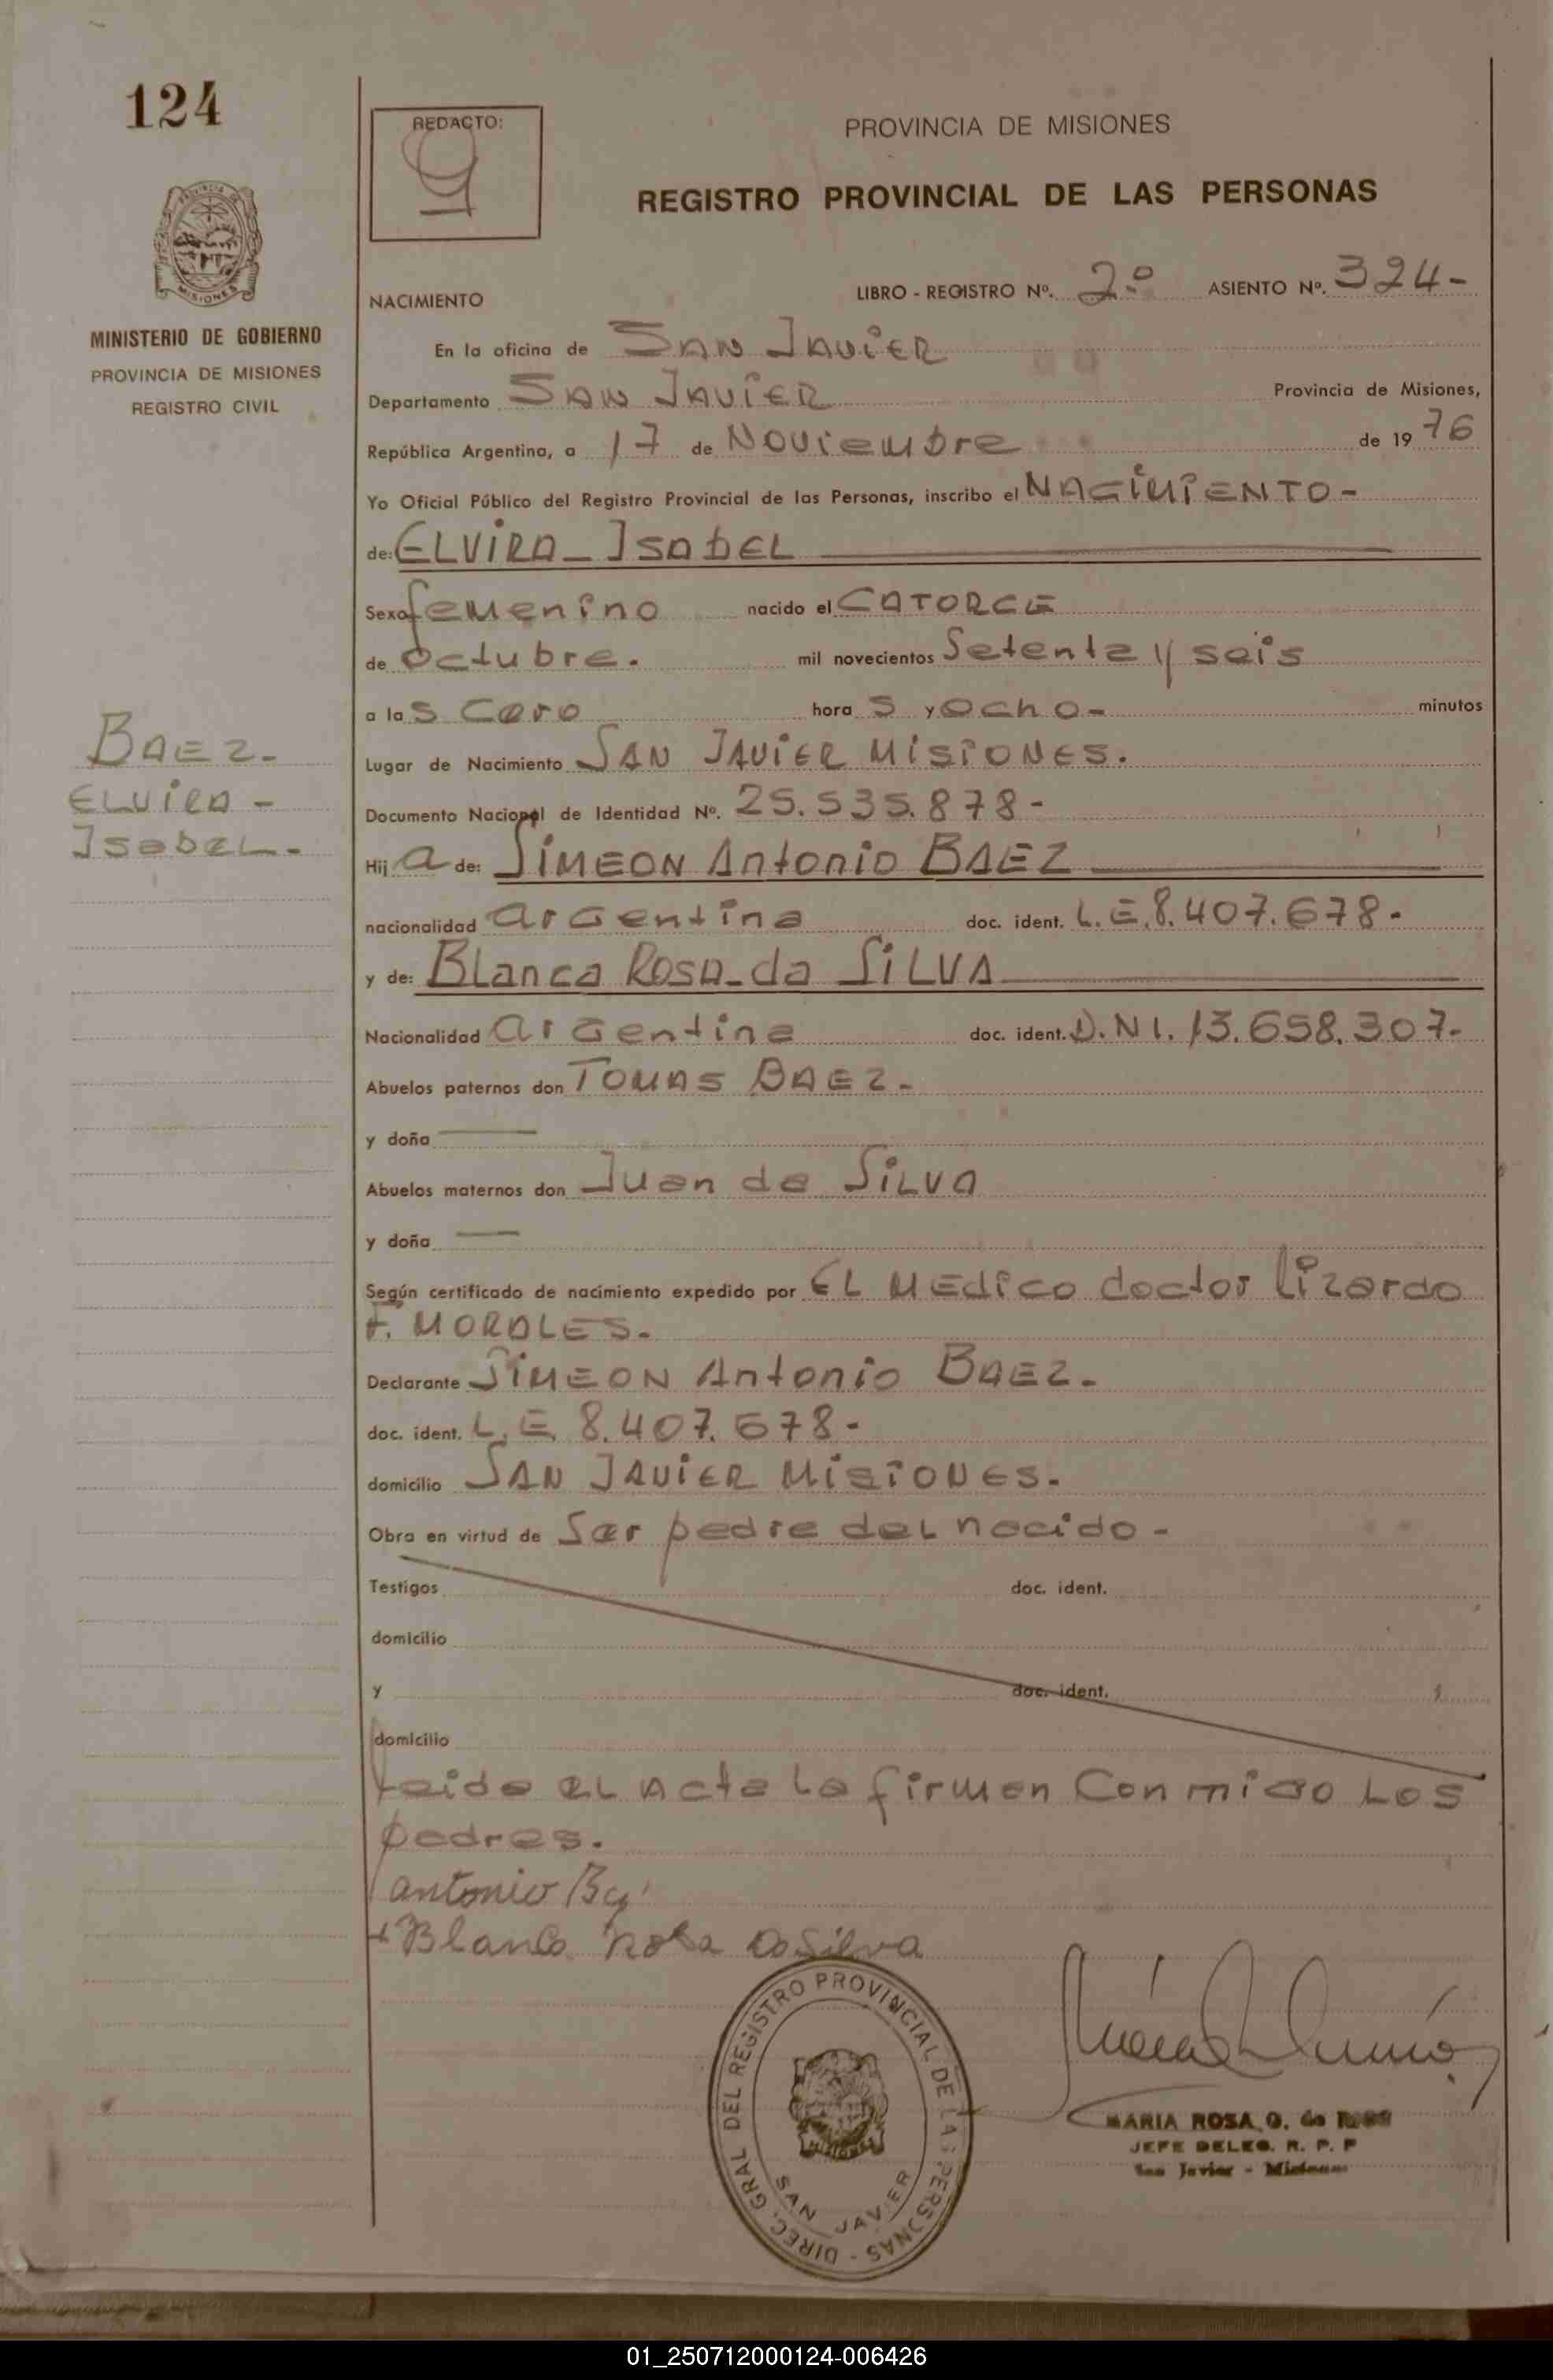 124
REDACTO:
PROVINCIA DE MISIONES
REGISTRO PROVINCIAL DE LAS PERSONAS
MISIONES
MINISTERIO DE GOBIERNO
PROVINCIA DE MISIONES
REGISTRO CIVIL
NACIMIENTO LIBRO - REGISTRO Nº. 2º ASIENTO Nº. 324-
En la oficina de SAN JAVIER
Departamento SAN JAVIER Provincia de Misiones,
República Argentina, a 17 de Noviembre de 1976
Yo Oficial Público del Registro Provincial de las Personas, inscribo el NACIMIENTO-
de: ELVIRA_ISABEL
Sexo femenino nacido el CATORCE
de octubre. mil novecientos Setenta y seis
a las Cero horas y ocho- minutos
Lugar de Nacimiento SAN JAVIER MISIONES.
Documento Nacional de Identidad Nº. 25.535.878-
BAEZ-
ELVIRA-
ISABEL-
Hija de: SIMEON Antonio BAEZ
nacionalidad argentina doc. ident. L.E.8.407.678-
y de: Blanca Rosa_da SILVA
Nacionalidad argentina doc. ident. D.N I. 13.658.307-
Abuelos paternos don TOMAS BAEZ-
y doña
Abuelos maternos don Juan da SILVA
y doña
Según certificado de nacimiento expedido por EL MEdico doctor lizardo
F. MORALES.
Declarante SIMEON Antonio BAEZ-
doc. ident. L.E. 8.407.678-
domicilio SAN JAVIER MISIONES.
Obra en virtud de Ser padre del nacido-
Testigos doc. ident.
domicilio
y doc. ident.
domicilio
Leida el Acta la firman Con migo Los
padres.
antonio
Blanca Rosa Da Silva
DIREC. GRAL DEL REGISTRO PROVINCIAL DE LAS PERSONAS -
MISIONES
SAN JAVIER
MARIA ROSA O. de
JEFE DELEG. R. P. P
San Javier - Misiones
01_250712000124-006426